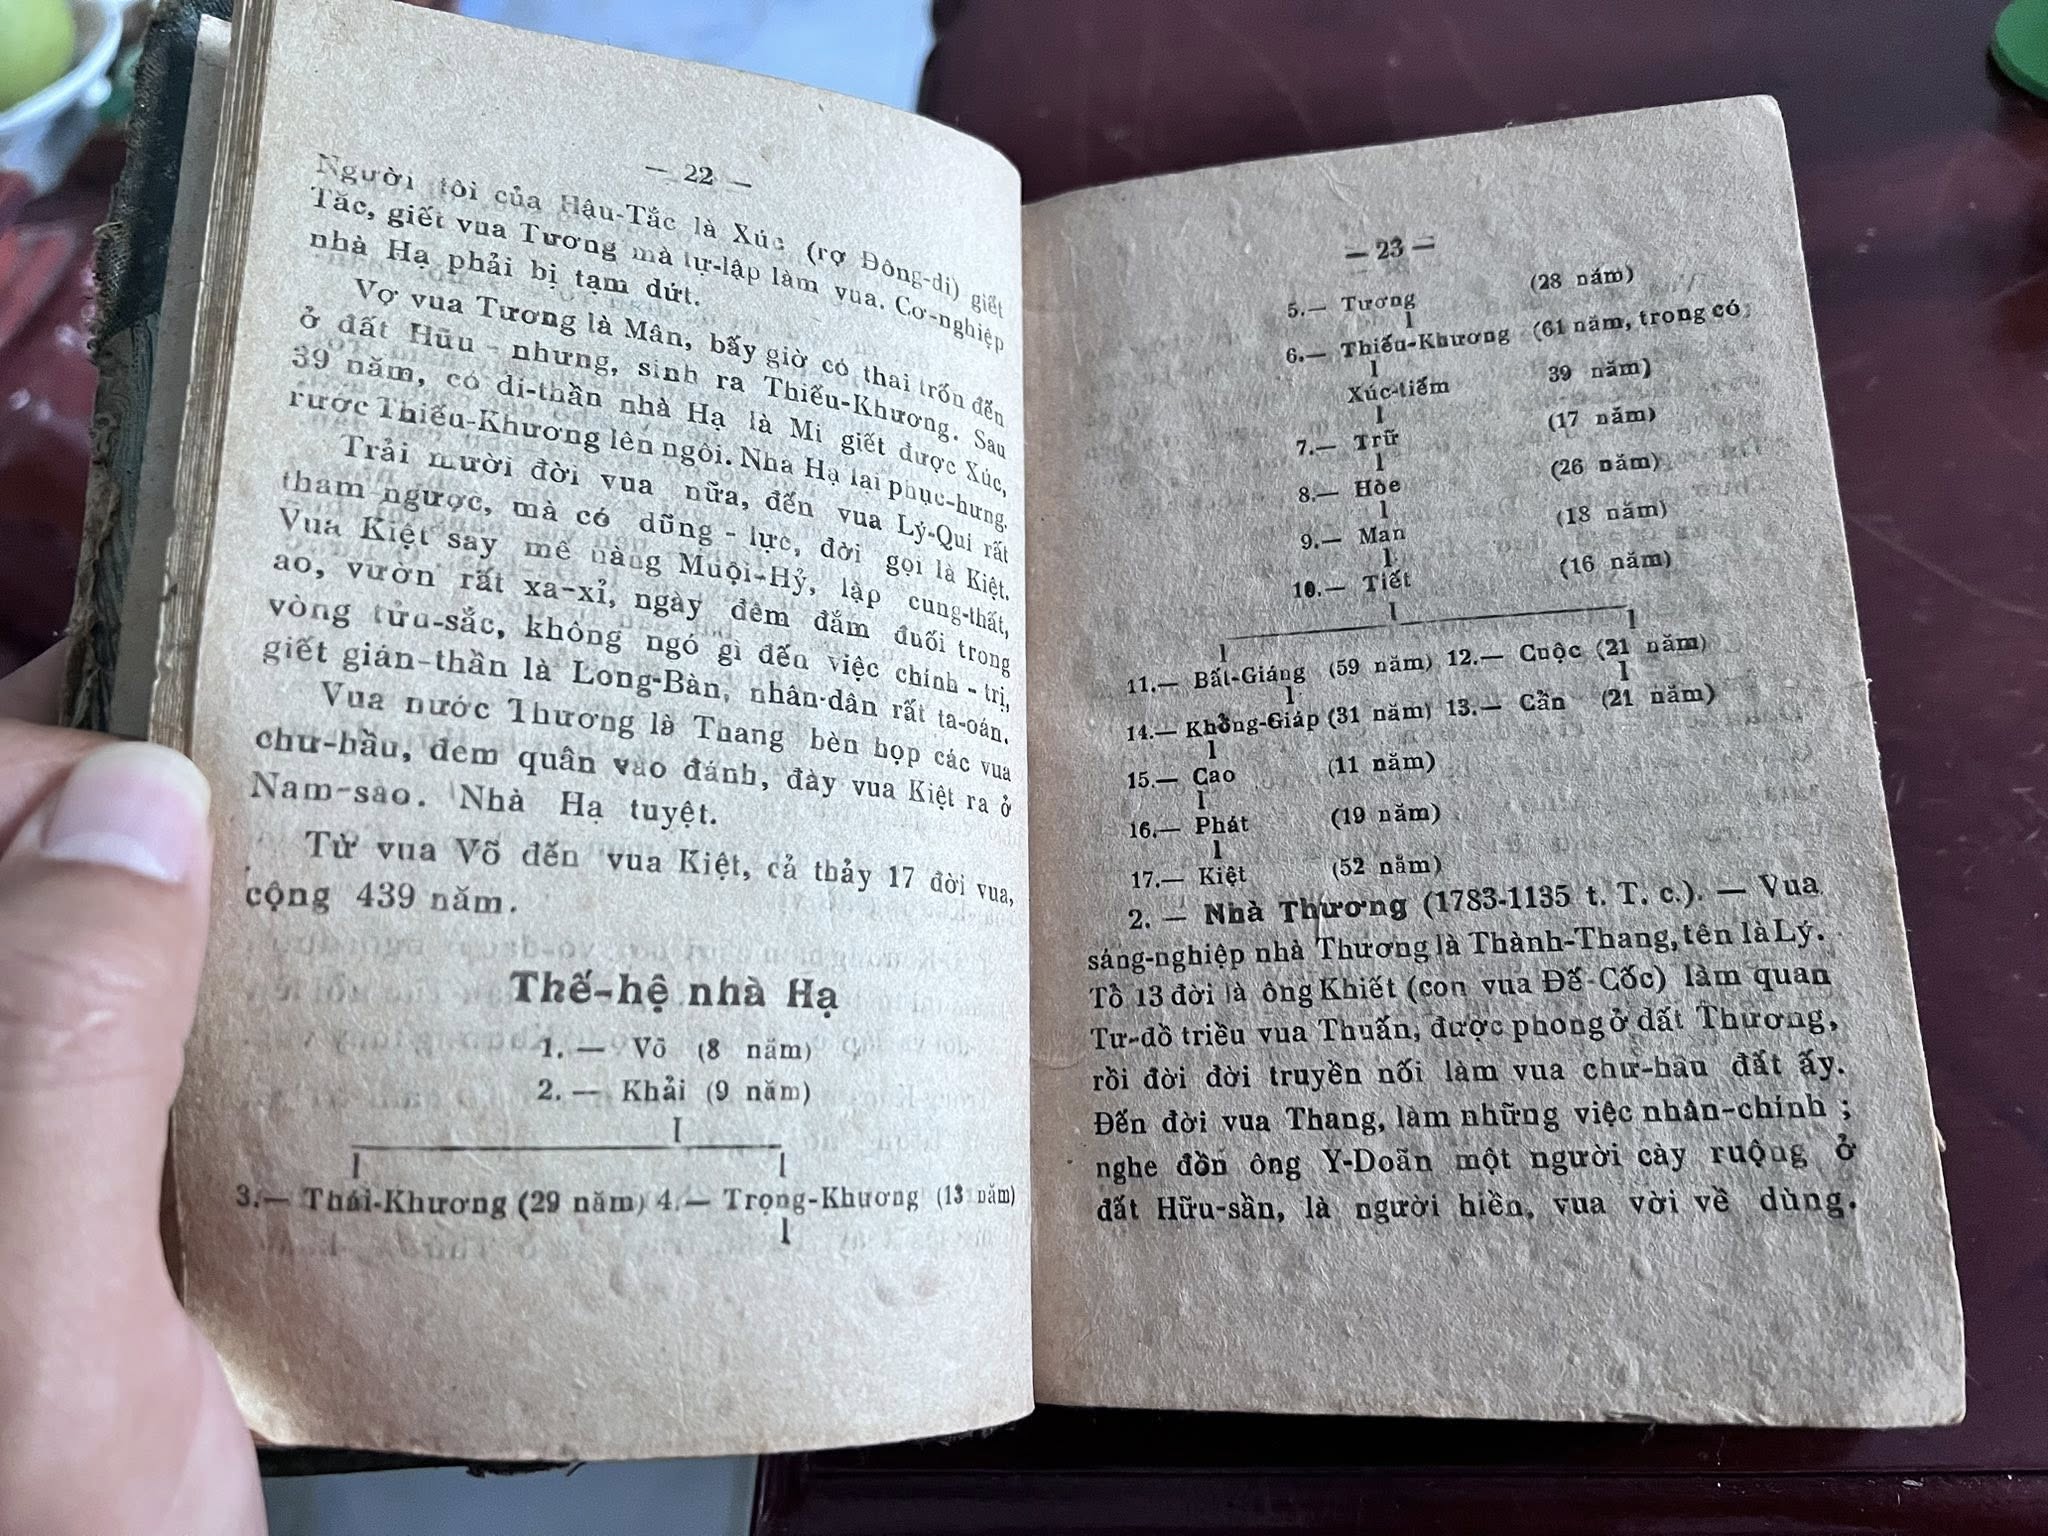 — 22 —
Người tôi của Hậu-Tắc là Xúc (rợ Đông-di) giết
Tắc, giết vua Tương mà tự-lập làm vua. Cơ-nghiệp
nhà Hạ phải bị tạm dứt.
Vợ vua Tương là Mân, bấy giờ có thai trốn đến
ở đất Hữu - nhưng, sinh ra Thiếu-Khương. Sau
39 năm, có di-thần nhà Hạ là Mi giết được Xúc,
rước Thiếu-Khương lên ngôi. Nhà Hạ lại phục-hưng.
Trải mười đời vua nữa, đến vua Lý-Qui rất
tham-ngược, mà có dũng - lực, đời gọi là Kiệt.
Vua Kiệt say mê nàng Muội-Hỷ, lập cung-thất,
ao, vườn rất xa-xỉ, ngày đêm đắm đuối trong
vòng tửu-sắc, không ngó gì đến việc chính - trị,
giết gián-thần là Long-Bàn, nhân-dân rất ta-oán.
Vua nước Thương là Thang bèn họp các vua
chư-hầu, đem quân vào đánh, đày vua Kiệt ra ở
Nam-sào. Nhà Hạ tuyệt.
Từ vua Võ đến vua Kiệt, cả thảy 17 đời vua,
cộng 439 năm.
Thế-hệ nhà Hạ
1. — Võ (8 năm)
2. — Khải (9 năm)
3.— Thái-Khương (29 năm) 4.— Trọng-Khương (13 năm)
— 23 —
5.— Tương (28 năm)
6.— Thiếu-Khương (61 năm, trong có
Xúc-tiếm 39 năm)
7.— Trữ (17 năm)
8.— Hòe (26 năm)
9.— Man (18 năm)
10.— Tiết (16 năm)
11.— Bất-Giáng (59 năm) 12.— Cuộc (21 năm)
14.— Khổng-Giáp (31 năm) 13.— Cần (21 năm)
15.— Cao (11 năm)
16.— Phát (19 năm)
17.— Kiệt (52 năm)
2. — Nhà Thương (1783-1135 t. T. c.). — Vua
sáng-nghiệp nhà Thương là Thành-Thang, tên là Lý.
Tổ 13 đời là ông Khiết (con vua Đế-Cốc) làm quan
Tư-đồ triều vua Thuấn, được phong ở đất Thương,
rồi đời đời truyền nối làm vua chư-hầu đất ấy.
Đến đời vua Thang, làm những việc nhân-chính ;
nghe đồn ông Y-Doãn một người cày ruộng ở
đất Hữu-sần, là người hiền, vua vời về dùng.